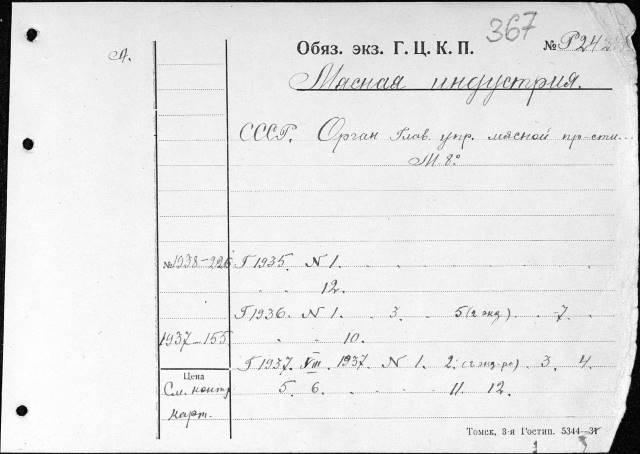 367
А.
Обяз. экз. Г. Ц. К. П. № Р242
Мясная индустрия.
СССР. Орган Глав. упр. мясной пр-сти.
М. 8°
№ 1938-226 Г 1935. N 1. . . . .
. . 12.
Г 1936. N 1. . 3. . 5 (2 экз). . 7.
1937-155 . . 10.
Г 1937. VIII. 1937. N 1. 2. (2 экз-ра). 3. 4.
Цена
См. контр. 5. 6. . . . 11. 12.
карт.
Томск, 3-я Гостип. 5344—31